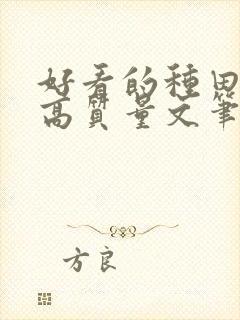 好看的種田
高質量文筆
方良